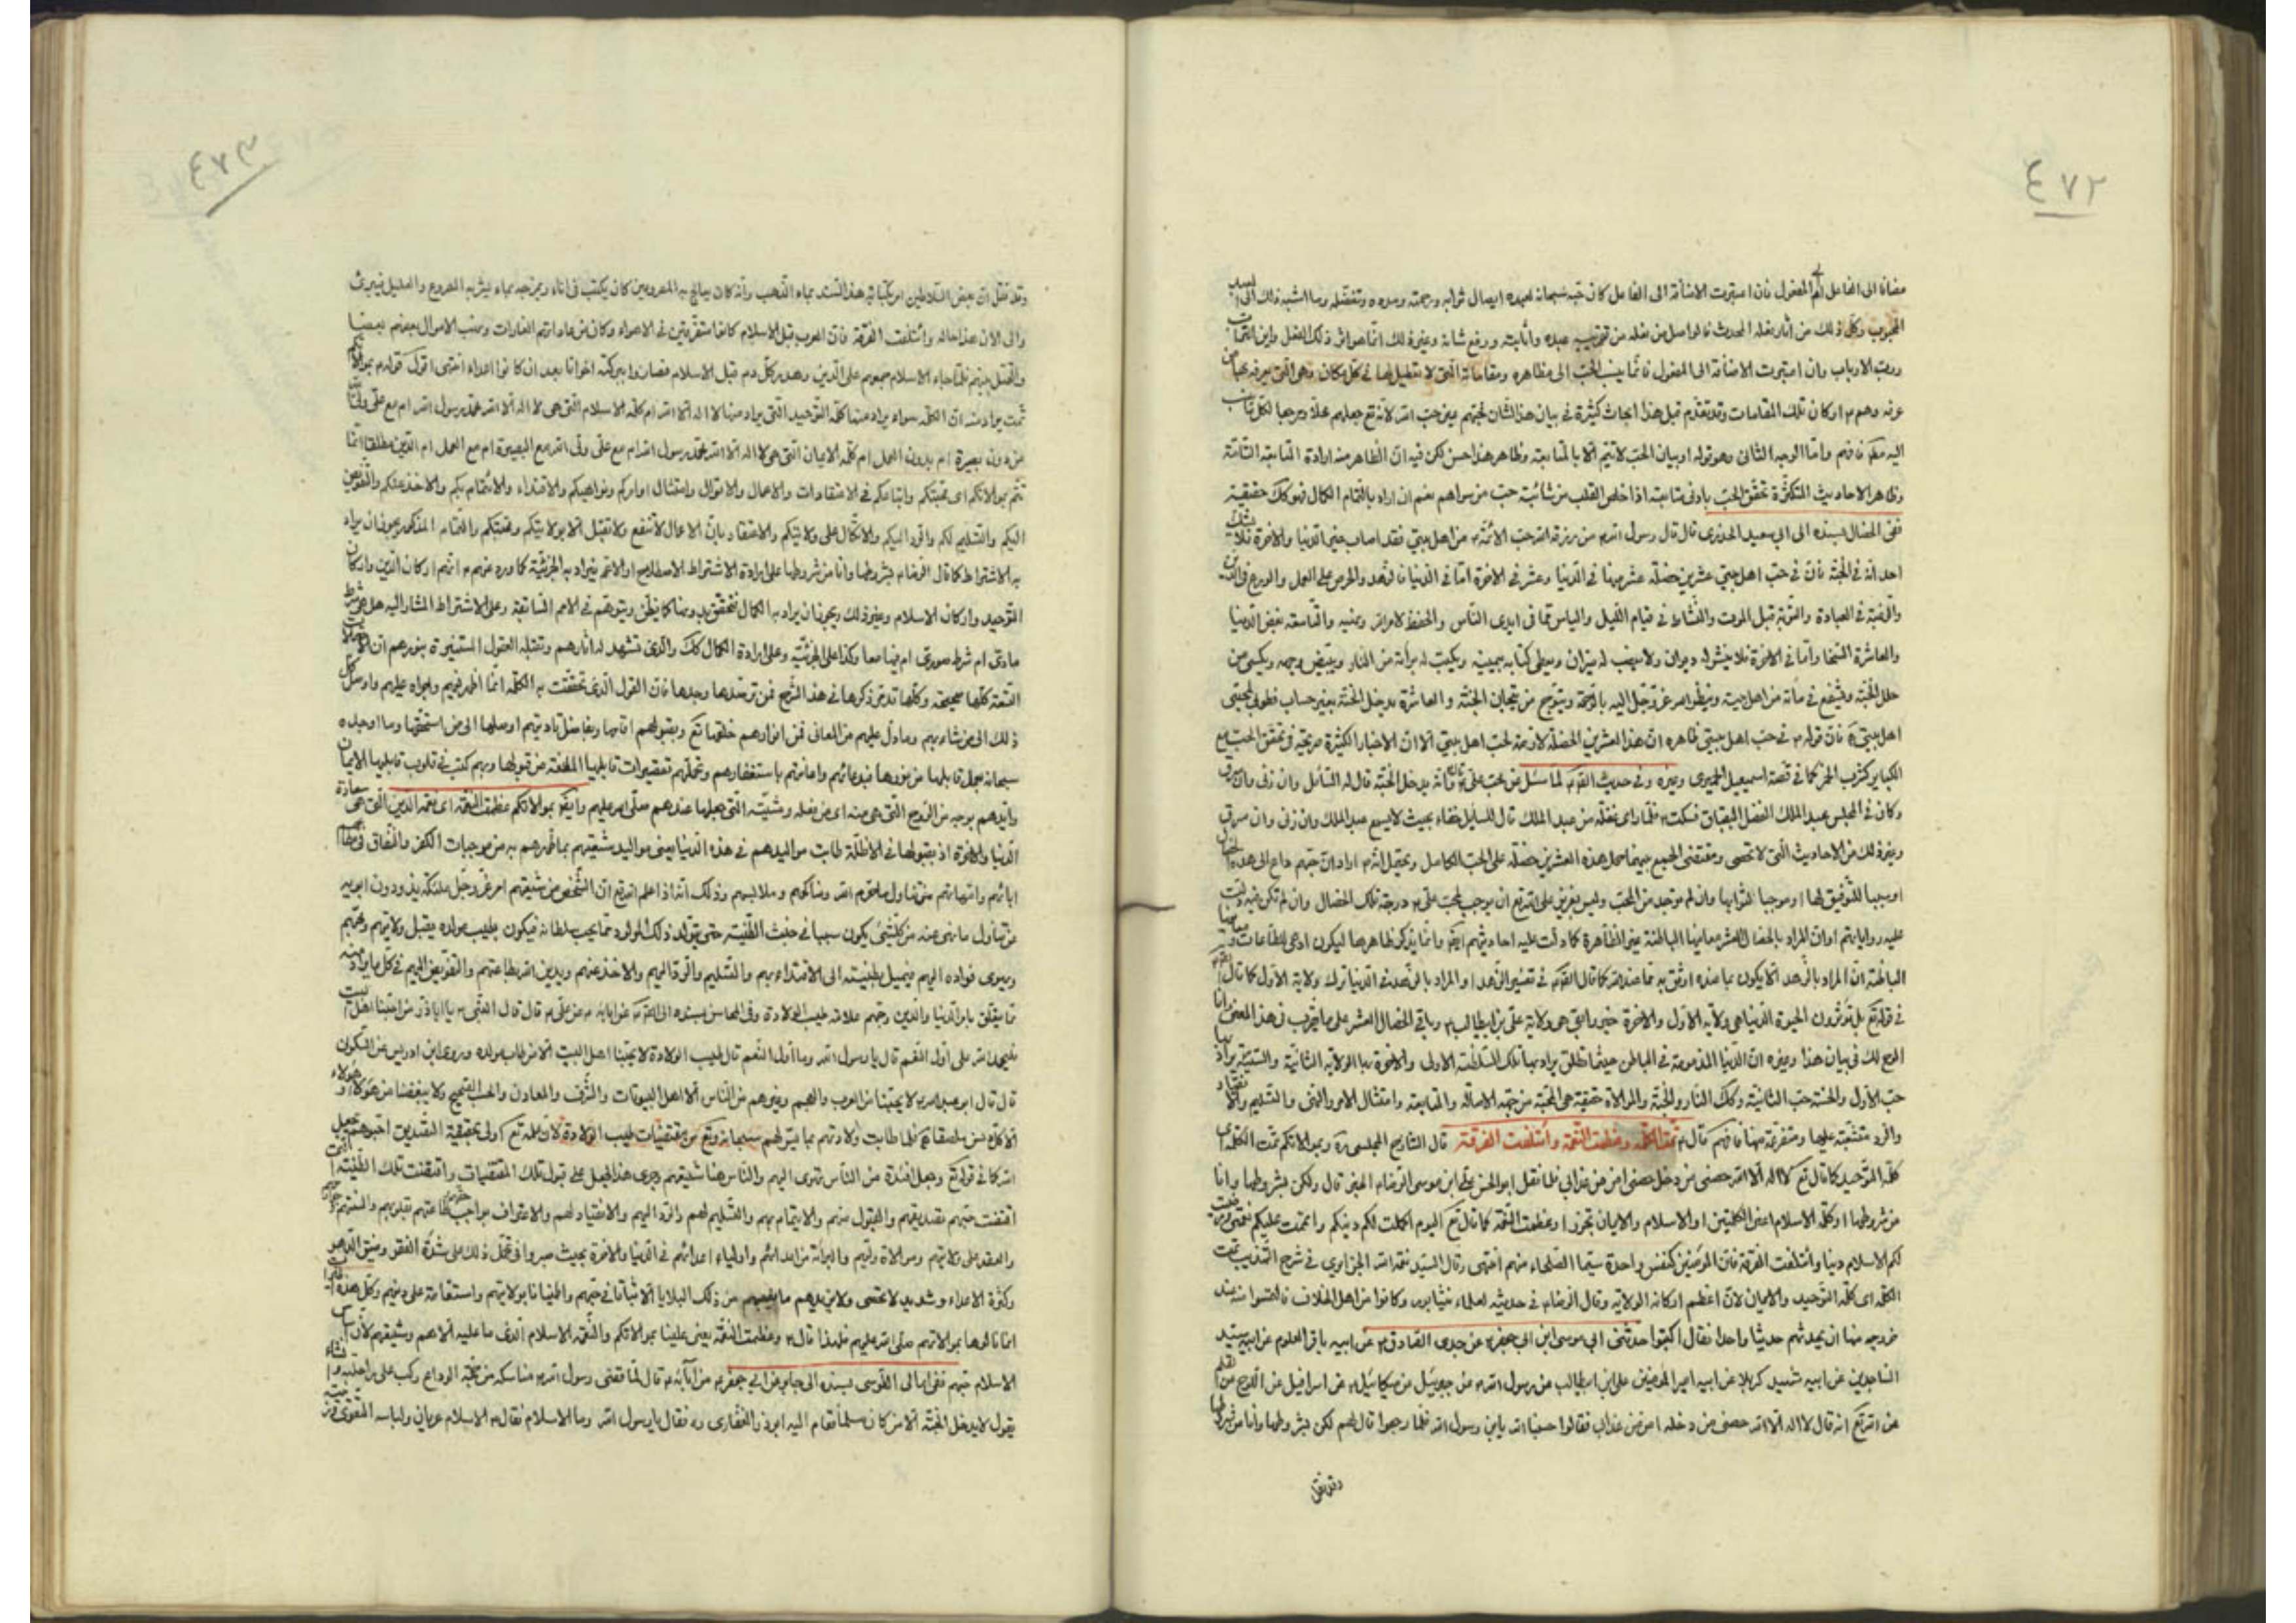 ٤٧٢
مضافا الى الفاعل او المفعول فان اعتبرت الاضافة الى الفاعل كان حبه سبحانه لعبده ايصال ثوابه ورحمته ومدده وتفضله وما اشبه ذلك الى العبد
المحبوب وكل ذلك من آثار فعله المحدث فالواصل من فعله من تقريب عبده واثابته ورفع شانه وغير ذلك انما هو اثر ذلك الفعل واين التراب
ورب الارباب وان اعتبرت الاضافة الى المفعول فانما ينسب الحب الى مظاهره ومقاماته التى لا تعطيل لها فى كل مكان وهى التى يعرفه بها من
عرفه وهم ٤ اركان تلك المقامات وقد تقدم قبل هذا ابحاث كثيرة فى بيان هذا الشان فحبهم عين حب الله لانه تع جعلهم محلا ومرجعا لكل
اليه فافهم واما الوجه الثانى وهو قوله او بيان الحب لا يتم الا بالمتابعة وظاهر هذا حسن لكن فيه ان الظاهر منه ارادة المتابعة التامة
وظاهر الاحاديث المتكثرة تحقق الحب بادنى متابعة اذا خلص القلب من شائبة حب من سواهم نعم ان اراد بالتمام الكمال فهو كك حقيقة
ففى الخصال بسنده الى ابي سعيد الخدرى قال قال رسول الله ص من رزقه الله حب الائمة من اهل بيتي فقد اصاب خير الدنيا والاخرة فلا يشكن
احد انه فى الجنة فان فى حب اهل بيتي عشرين خصلة عشر منها فى الدنيا وعشر فى الاخرة اما فى الدنيا فالزهد والحرص على العمل والورع فى الدين
والرغبة فى العبادة والتوبة قبل الموت والنشاط فى قيام الليل والياس مما فى ايدى الناس والحفظ لامر الله ونهيه والتاسعة بغض الدنيا
والعاشرة السخا واما فى الاخرة فلا ينشر له ديوان ولا ينصب له ميزان ويعطى كتابه بيمينه ويكتب له برأة من النار ويبيض وجهه ويكسى من
حلل الجنة ويشفع فى مائة من اهل بيته وينظر الله عز وجل اليه بالرحمة ويتوج من تيجان الجنة والعاشرة يدخل الجنة بغير حساب فطوبى لمحبى
اهل بيتى ه فان قوله ص فى حب اهل بيتى ظاهره ان هذا العشرين الخصلة لازمة لحب اهل بيتي الا ان الاخبار الكثيرة صريحة فى تحقق الحب مع
الكباير كشرب الخمر كما فى قصة اسمعيل الحميرى وغيره وفى حديث القم لما سئل عن محب على انه يدخل الجنة قال له السائل وان زنى وان سرق
وكان فى المجلس عبد الملك فسكت فلما راى غفلة من عبد الملك قال للسايل بخفاء بحيث لا يسمع عبد الملك وان زنى وان سرق
وغير ذلك من الاحاديث التى لا تحصى ومقتضى الجمع بينهما حمل هذه العشرين خصلة على الحب الكامل ويحتمل انه اراد ان حبهم داع الى هذه الخصال
او سببا للتوفيق لها او موجبا لثوابها وان لم توجد من المحب وليس بعزيز على الله تع ان يوجب لمحب على درجة تلك الخصال وان لم تكن فيه
عليه رواياتهم او ان المراد بالخصال العشر معانيها الباطنة غير الظاهرة كما دلت عليه احاديثهم وانما يذكر ظاهرها ليكون ادعى للطاعات
الباطنة ان المراد بالزهد الا يكون بما عنده اوثق به مما عند الله كما قال فى تفسير الزهد او المراد بالزهد فى الدنيا ترك ولاية الاول كما قال
فى قوله تع بل تؤثرون الحيوة الدنيا هى ولاية الاول والاخرة خير وابقى هى ولاية على بن ابيطالب وباقى الخصال العشر على ما يقرب فى هذا المعنى وانا
فى بيان هذا وغيره ان الدنيا المذمومة فى الباطن حيثما تطلق يراد بها تلك السلطنة الاولى والاخرة بها الولاية الثانية والسيئة يراد
حب الاول والحسنة حب الثانية وكك النار والجنة والموالاة حقيقة هى المحبة من جهة الاصالة والمتابعة وامتثال الامر والنهى والتسليم
والرد متفرعة عليها ومتفرعة منها فافهم قال تمت الكلمة وعظمت النعمة وائتلفت الفرقة قال الشارح المجلسى ره وبموالاتكم تمت الكلمة اى
كلمة التوحيد كما قال تع لا اله الا الله حصنى من دخل حصنى امن من عذابى فلما نقل ابو الحسن على بن موسى الرضا الخبر قال ولكن بشروطها وانا
من شروطها او كلمة الاسلام اعنى الكلمتين او الاسلام والايمان تجوزا وعظمت النعمة كما قال تع اليوم اكملت لكم دينكم واتممت عليكم نعمتى ورضيت
لكم الاسلام دينا وائتلفت الفرقة فان المؤمنين كنفس واحدة سيما الصلحاء منهم انتهى وقال السيد نعمة الله الجزايري فى شرح التهذيب تمت
الكلمة اى كلمة التوحيد والايمان لان اعظم اركانه الولاية وقال الرضا فى حديثه لعلماء نيشابور وكانوا من اهل الخلاف فالتمسوا منه عند
خروجه منها ان يحدثهم حديثا واحدا فقال اكتبوا حدثنى ابى موسى ابن ابى جعفر عن جدى الصادق عن ابيه باقر العلوم عن ابيه سيد
الساجدين عن ابيه شهيد كربلا عن ابيه امير المؤمنين على ابن ابيطالب عن رسول الله ص عن جبرئيل عن ميكائيل عن اسرافيل عن اللوح عن القلم
عن الله تع انه قال لا اله الا الله حصنى من دخله امن من عذاب فقالوا حسبنا الله يابن رسول الله فلما رجعوا قال لهم لكن بشروطها وانا من شروطها
وقد نقل
٤٧٣
وقد نقل ان بعض السلاطين امر بكتابة هذا السند بماء الذهب وانه كان يعالج به المصروعين كان يكتب فى اناء ويمزجه بماء يشربه المصروع والعليل فيبرئ
والى الان هذا حاله وائتلفت الفرقة فان العرب قبل الاسلام كانوا متفرقين فى الاهواء وكان من عاداتهم الغارات ونهب الاموال بعضهم بعضا
والقتل بينهم فلما جاء الاسلام جمعهم على الدين وهدر كل دم قبل الاسلام فصاروا ببركته اخوانا بعد ان كانوا اعداء انتهى اقول قوله بموالاتكم
تمت يراد منه ان الكلمة سواء يراد منها كلمة التوحيد التى يراد منها لا اله الا الله ام كلمة الاسلام التى هى لا اله الا الله محمد رسول الله ام مع على ولى الله
من دون بصيرة ام بدون العمل ام كلمة الايمان التى هى لا اله الا الله محمد رسول الله ام مع على ولى الله مع البصيرة ام مع العمل ام الدين مطلقا انما
تتم بموالاتكم اى محبتكم واتباعكم فى الاعتقادات والاعمال والاقوال وامتثال اوامركم ونواهيكم والاقتداء والائتمام بكم والاخذ عنكم والتفويض
اليكم والتسليم لكم والرد اليكم والاتكال على ولايتكم والاعتقاد بان الاعمال لا تنفع ولا تقبل الا بولايتكم ومحبتكم والتمام المذكور يجوز ان يراد
به الاشتراط كما قال الرضا بشروطها وانا من شروطها على ارادة الاشتراط الاصطلاحى او الاعم فيراد به الجزئية كما ورد عنهم انهم اركان الدين واركان
التوحيد واركان الاسلام وغير ذلك ويجوز ان يراد به الكمال فتحقق بدونها كما يظن ويتوهم فى الامم السابقة وعلى الاشتراط المشار اليه هل هى شرط
مادى ام شرط صورى ام فيها معا وكذا على الجزئية وعلى ارادة الكمال كك والذى تشهد له آثارهم وتقبله العقول المستنيرة بنورهم ان
كلها صحيحة وكلها قد مر ذكرها فى هذا الشرح فمن ترصدها وجدها فان القول الذى تحققت به الكلمة انما اظهر فيهم واجراه عليهم واوصل كل
ذلك الى من شاء بهم وما دل عليهم من المعانى فمن انوارهم خلقها تع وبقبولهم اقامها وبفاضل تاديتهم اوصلها الى من استحقها وما اوجده
سبحانه بهم كتب فى قلوب قابليها الايمان
وايدهم بروح منه التى هى منه اى من فعله ومشيته التى جعلها عندهم صلى الله عليهم وايضا بموالاتكم عظمت النعمة اى نعمة الدين التى هى سعادة
الدنيا والاخرة اذ بقبولها فى الاظلة طابت مواليدهم فى هذه الدنيا يعنى مواليد شيعتهم بما طهرهم به من موجبات الكفر والنفاق
ابائهم وامهاتهم من تناول ما حرم الله ومناكحهم وملابسهم وذلك انه اذا علم الله تع ان الشخص من شيعتهم امر عز وجل ملائكة يذودون ابويه
عن تناول ما نهى عنه من كل شئ يكون سببا فى خبث الطينة حتى يتولد ذلك المولود فيكون بطيب مولده يقبل ولايتهم ومحبتهم
ويهوى فؤاده اليهم فيميل بطينته الى الاقتداء بهم والتسليم والرد اليهم والاخذ عنهم ويدين الله بطاعتهم والتفويض اليهم فى كل ما يراد منه
مما يتعلق بامر الدنيا والدين وحبهم علامة طيب الولادة وفى المحاسن بسنده عن ابائه عن على قال قال النبى ص يا اباذر من احبنا اهل البيت
فليحمد الله على اول النعم قال يا رسول الله وما اول النعم قال طيب الولادة لا يحبنا اهل البيت الا من طاب مولده وروى ابن ادريس عن السكونى
قال قال ابو عبد الله لا يحبنا من العرب والعجم وغيرهم من الناس الا اهل البيوتات والشرف والمعادن والحسب الصحيح ولا يبغضنا من هؤلاء وهؤلاء
الا كل دنس ملصق ه فلما طابت ولادتهم بما يسر لهم سبحانه وتع من مقتضيات طيب الولادة
الله كما فى قوله تع وجعل افئدة من الناس تهوى اليهم والناس هنا شيعتهم وجرى هذا الجعل على قبول تلك المقتضيات واقتضت تلك الطينة
اقتضت حبهم تصديقهم والقبول منهم والايتمام بهم والتسليم لهم والرد اليهم والانقياد لهم والاعتراف بواجب طاعتهم
والعقد على ولايتهم وموالاة وليهم والبرائة من اعدائهم واولياء اعدائهم فى الدنيا والاخرة بحيث صبروا فى تحمل ذلك على شدة الفقر وضيق
وكثرة الاعداء وشدايد لا تحصى ولا يزيدهم ما يصيبهم من ذلك البلايا الا ثباتا فى حبهم واطمينانا بولايتهم واستقامة على دينهم وكل هذه
انما نالوها بموالاتهم صلى الله عليهم فلهذا قال وعظمت النعمة يعنى علينا بموالاتكم والنعمة الاسلام الذى ما عليه الا هم وشيعتهم لان
الاسلام حبهم ففى امالى الطوسى بسنده الى جابر عن ابى جعفر عن آبائه قال لما قضى رسول الله ص مناسكه من حجة الوداع ركب على راحلته وانشاء
يقول لا يدخل الجنة الا من كان مسلما فقام اليه ابوذر الغفارى ره فقال يا رسول الله وما الاسلام فقال ص الاسلام عريان ولباسه التقوى